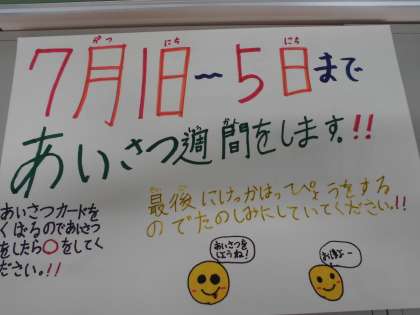 がつ にち にち
7月1日〜5日まで
しゅうかん
あいさつ週間をします。!!
あいさつカードを
くばるのであいさつ
をしたら○をしてく
ださい。!!
さいご
最後にけっかはっぴょうをする
のでたのしみにしていてください。!!
あいさつを
しようね!
おはよー